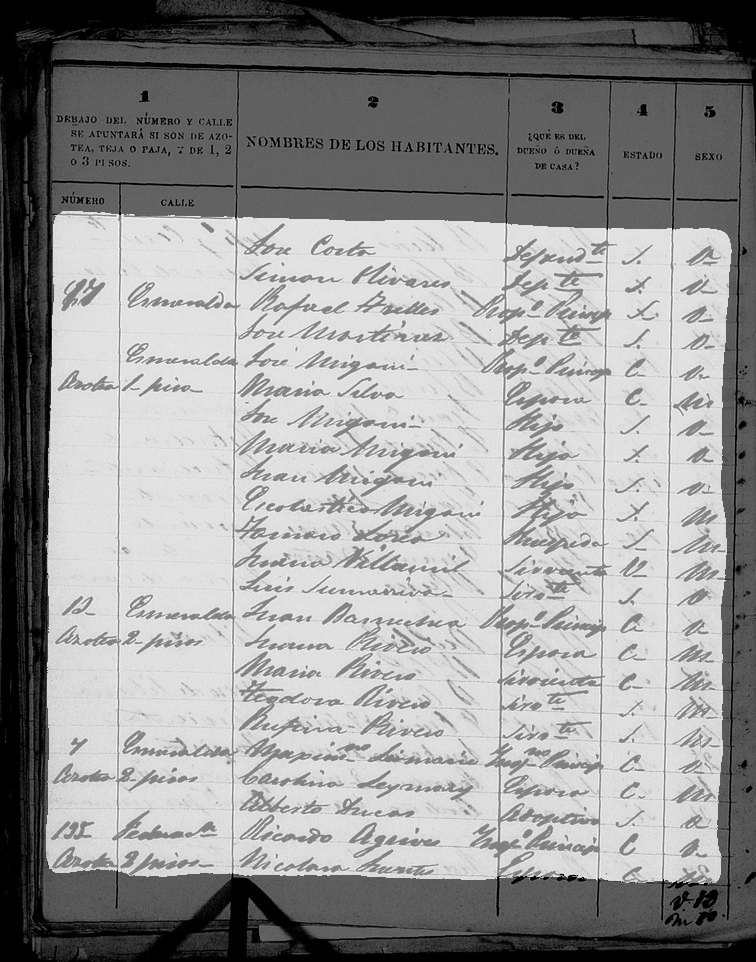 1 2 3 4 5
DEBAJO DEL NÚMERO Y CALLE SE APUNTARÁ SI SON DE AZOTEA, TEJA O PAJA, Y DE 1, 2 O 3 PISOS.
NOMBRES DE LOS HABITANTES.
¿QUÉ ES DEL DUEÑO Ó DUEÑA DE CASA?
ESTADO
SEXO
NÚMERO CALLE
José Costa Depend.te S. V
Simon Olivares Dep.te S. V
Esmeralda Rafael Prop.o Princip S. V
José Martinez Dep.te S. V
Esmeralda José Migoni Prop.o Princip C. V
Azotea 1 piso Maria Silva Esposa C. M
José Migoni Hijo S. V
Maria Migoni Hijo S. V
Juan Migoni Hijo S. V
Escolastica Migoni Hija S. M
Huespeda S. M
Villamil Sirvienta V M
Luis Sirv.te S. V
12 Esmeralda Juan Prop.o Princip C. V
Azotea 2 pisos Juana Rivero Esposa C. M
Maria Rivero Sirvienta C. M
Teodora Rivero Sirv.te S. M
Rufina Rivero Sirv.te S. M
7 Esmeralda Princip C. V
Azotea 2 pisos Carolina Esposa C. M
Alberto Ducas Adoptivo S. V
135 Ricardo Princip C V
Azotea 2 pisos Nicolasa Esposa C. M
V. 13
M 10